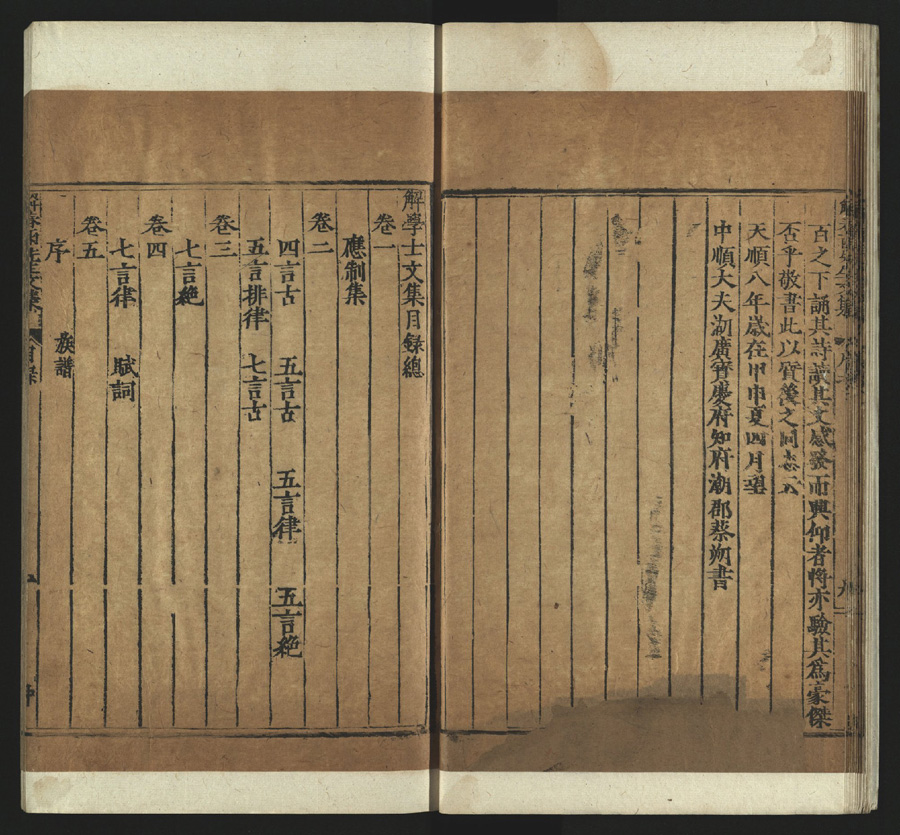 百之下誦其詩讀其文感發而興仰者將亦驗其爲豪傑
否乎敬書此以質後之同志云
天順八年歲在甲申夏四月望
中順大夫湖廣寶慶府知府潮郡蔡朔書
解學士文集目錄總
卷一
應制集
卷二
四言古 五言古 五言律 五言絶
五言排律 七言古
卷三
七言絶
卷四
七言律 賦詞
卷五
序 族譜